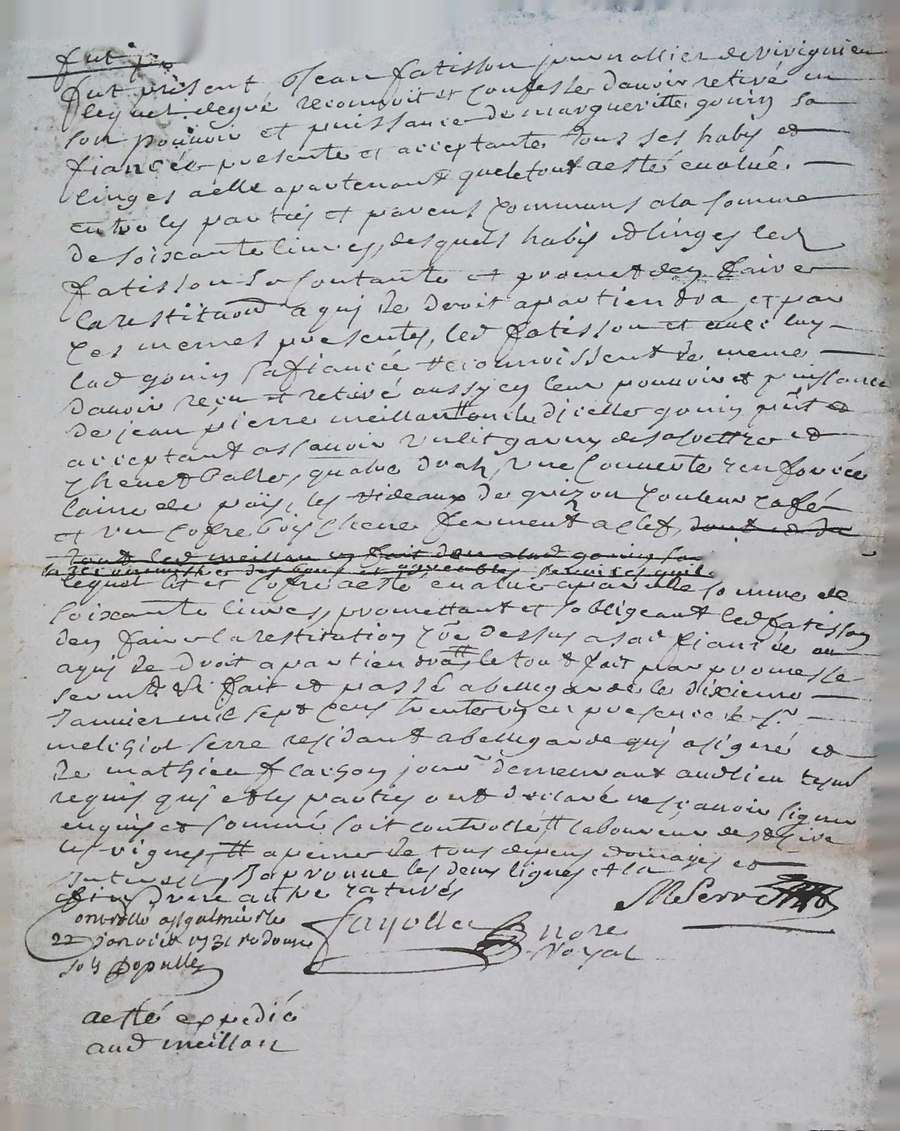 fut p
fut présent Jean fatisson journallier de vivignieu
lequel degré reconnoit et confesse davoir retiré en
son pouvoir et puissance de margueritte gouin sa
fiancée presente et acceptante tous ses habis et
linges aelle apartenant queletout aesté evalué
entre les parties et parens communs ala somme
de soixante livres, desquels habis et linges led
fatisson se contante et promet den faire
la restitaon a qui de droit apartiendra, et par
ces memes presentes, led fatisson et avec luy
lad gouin safiancée reconnoissent de meme
davoir reçu et retiré aussy en leur pouvoir et puissance
de jean pierre meillan oncle dicelle gouin pnt et
acceptant assavoir un lit garny de et
chevet balle, quatre drah, une couverte renforcée
laine de païs, les rideaux de couleur caffé
et un coffre bois chene fermant a clef, dont et du
tout led meillan fait don alad gouin
et agreables services quil
lequel lit et coffre aesté evalué apareille somme de
soixante livres, promettant et sobligeant led fatisson
den faire la restitution cõe dessus asad fiancée ou
a qui de droit apartiendra le tout fait par promesse
serment &c fait et passé abellegarde le dixieme
Janvier mil sept cens trente un en presence de sr
melchiol serre residant abellegarde qui asigné et
de mathieu flachon jour demeurant audlieu tesm
requis qui et les parties ont declaré ne sçavoir signer
enquis et sommé soit controllé laboureur de st
les vignes, apeine de tous depens domages et
interests Japrouve les deux lignes et la
autre raturés
MSerre
fayolle
nore
Royal
Controllé astgalmier le
22 janvier 1731
sols
aesté expedié
aud meillan